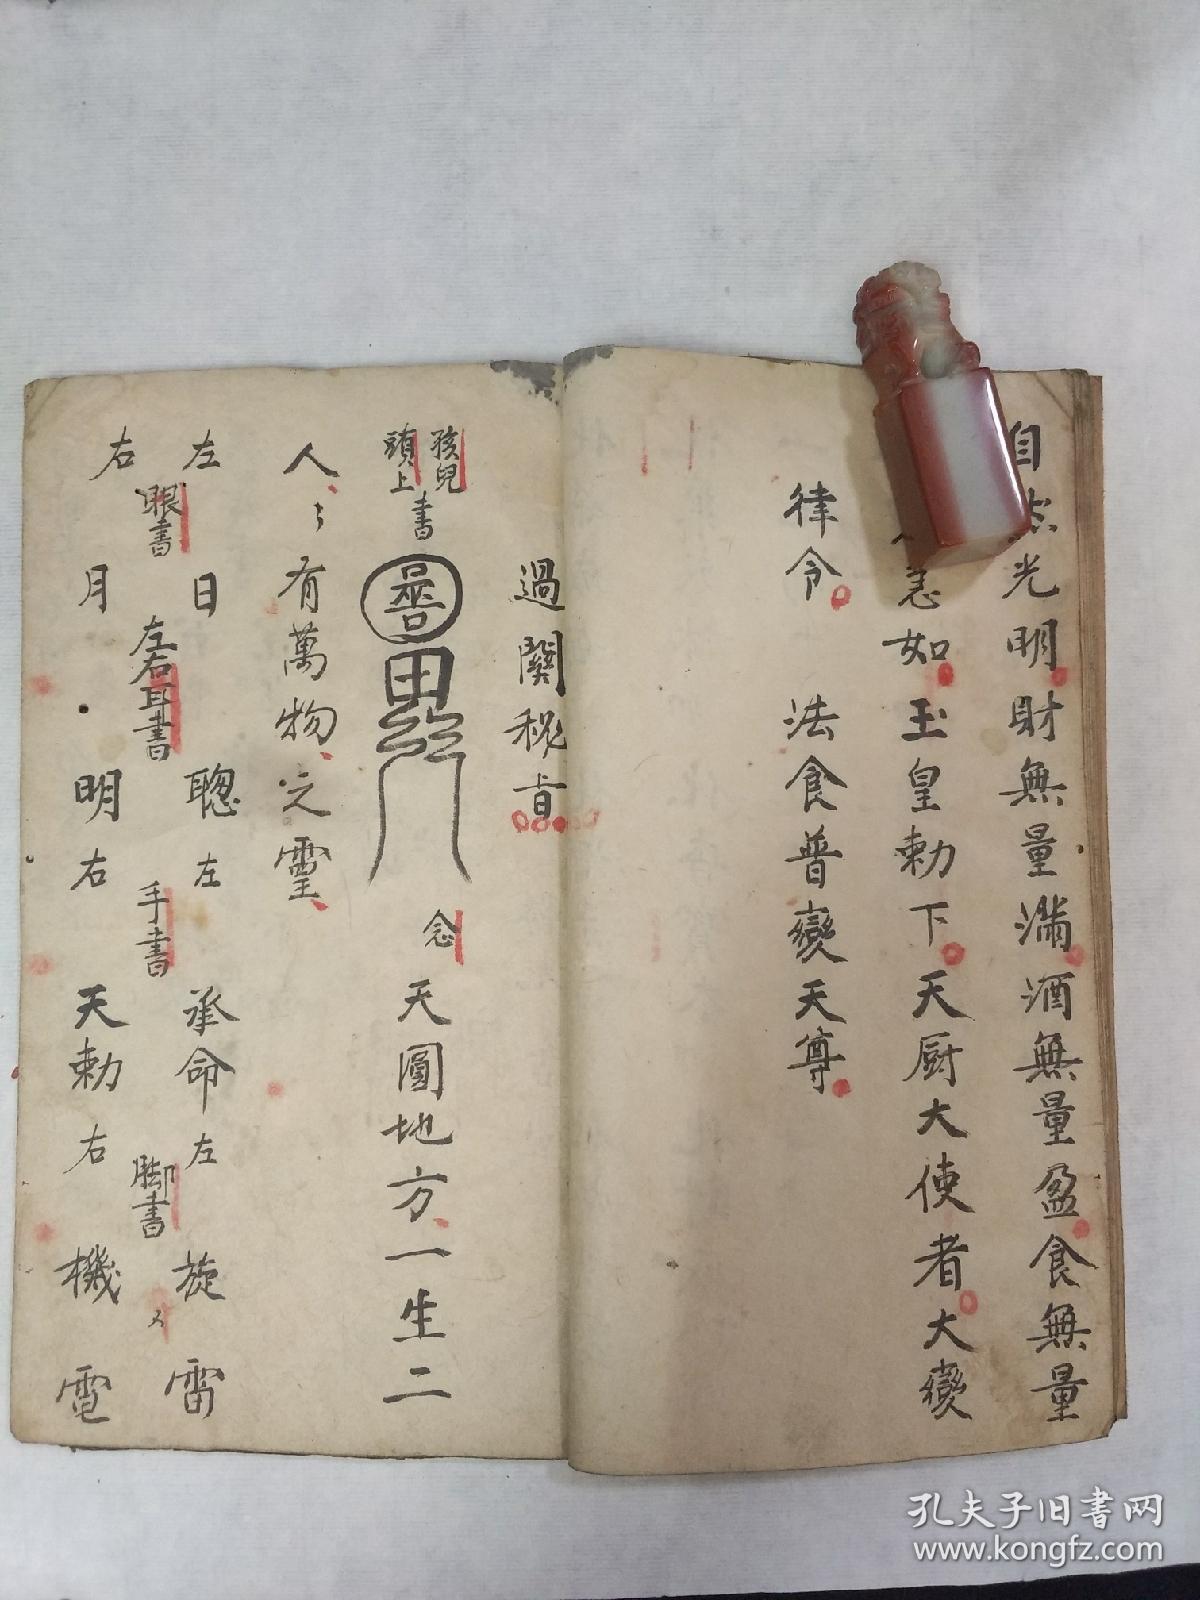 自然光明財無量滿酒無量盈食無量
急如玉皇勅下天厨大使者大變
律令 法食普變天尊
過關秘旨
孩兒
頭上
書
念 天圓地方一生二
人々有萬物之靈
左 日 聰 左 承命 左 旋 雷
眼書 左右耳書 手書 脚書
右 月 明 右 天勅 右 機 電
孔夫子旧书网
www.kongfz.com